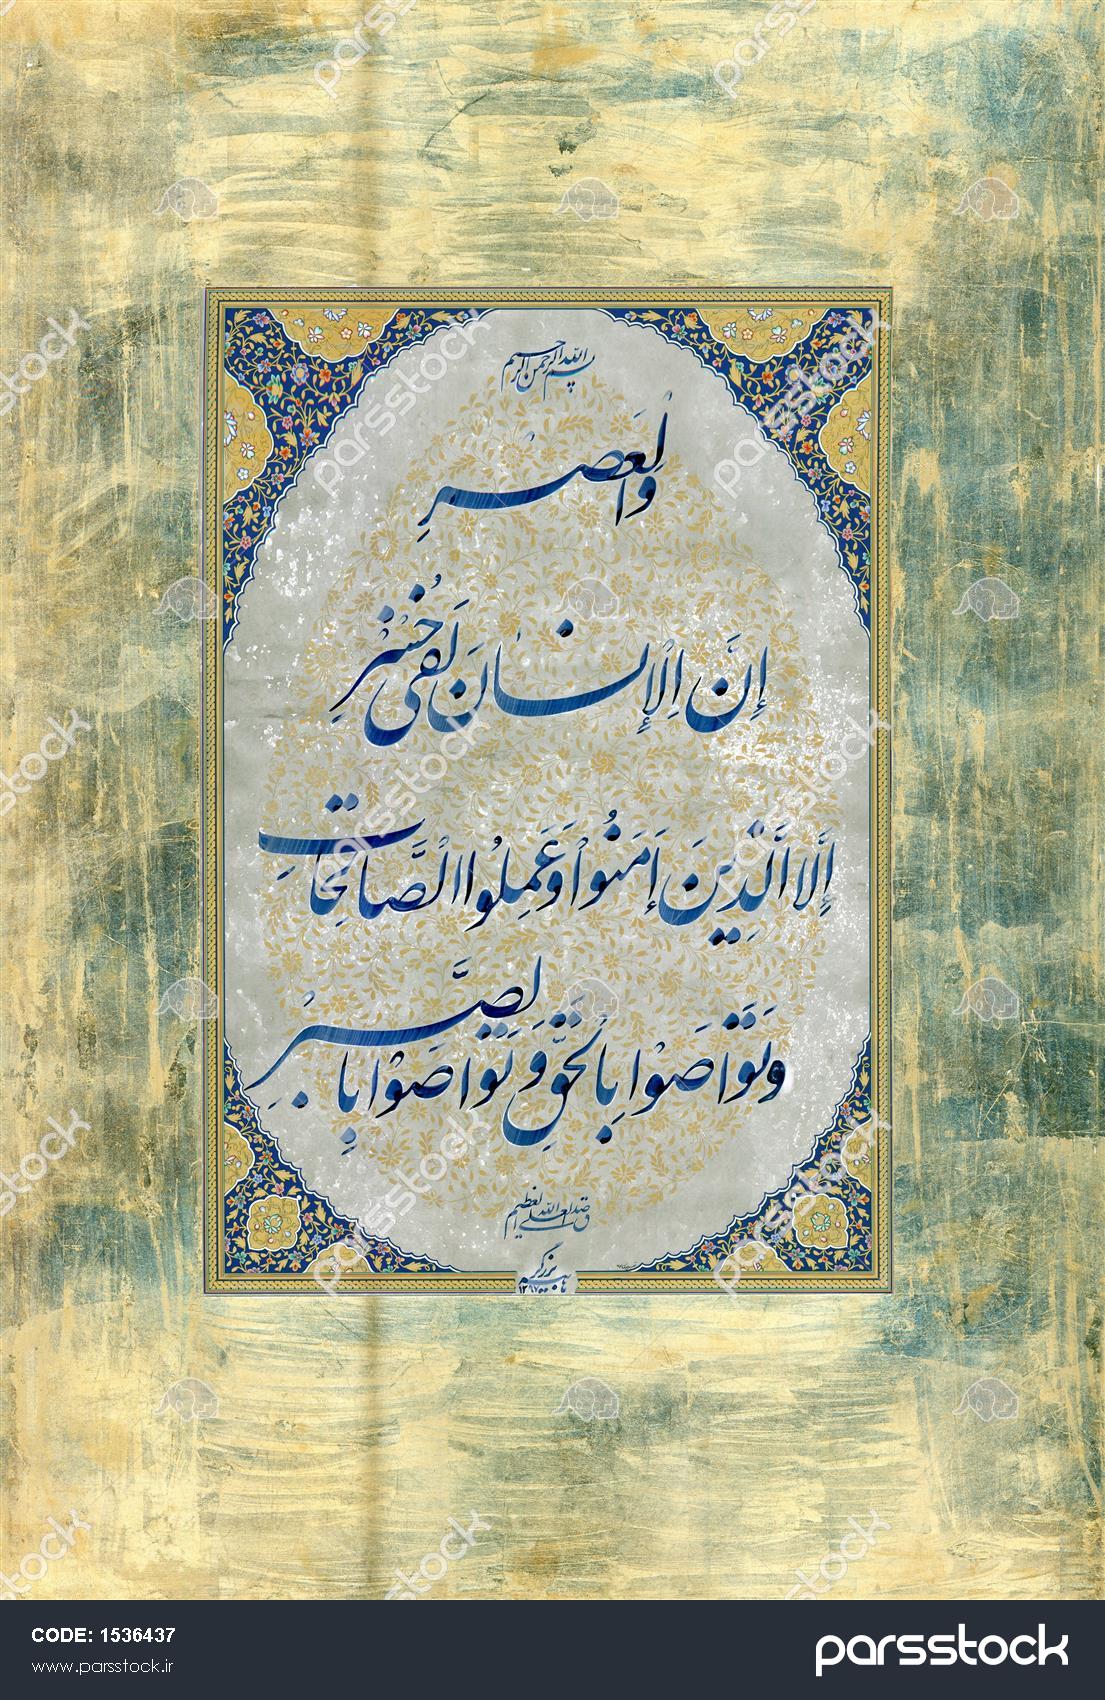 بسم الله الرحمن الرحيم
وَالْعَصْرِ
إِنَّ الْإِنْسَانَ لَفِي خُسْرٍ
إِلَّا الَّذِينَ آمَنُوا وَعَمِلُوا الصَّالِحَاتِ
وَتَوَاصَوْا بِالْحَقِّ وَتَوَاصَوْا بِالصَّبْرِ
صدق الله العلي العظيم
CODE: 1536437
www.parsstock.ir
parsstock